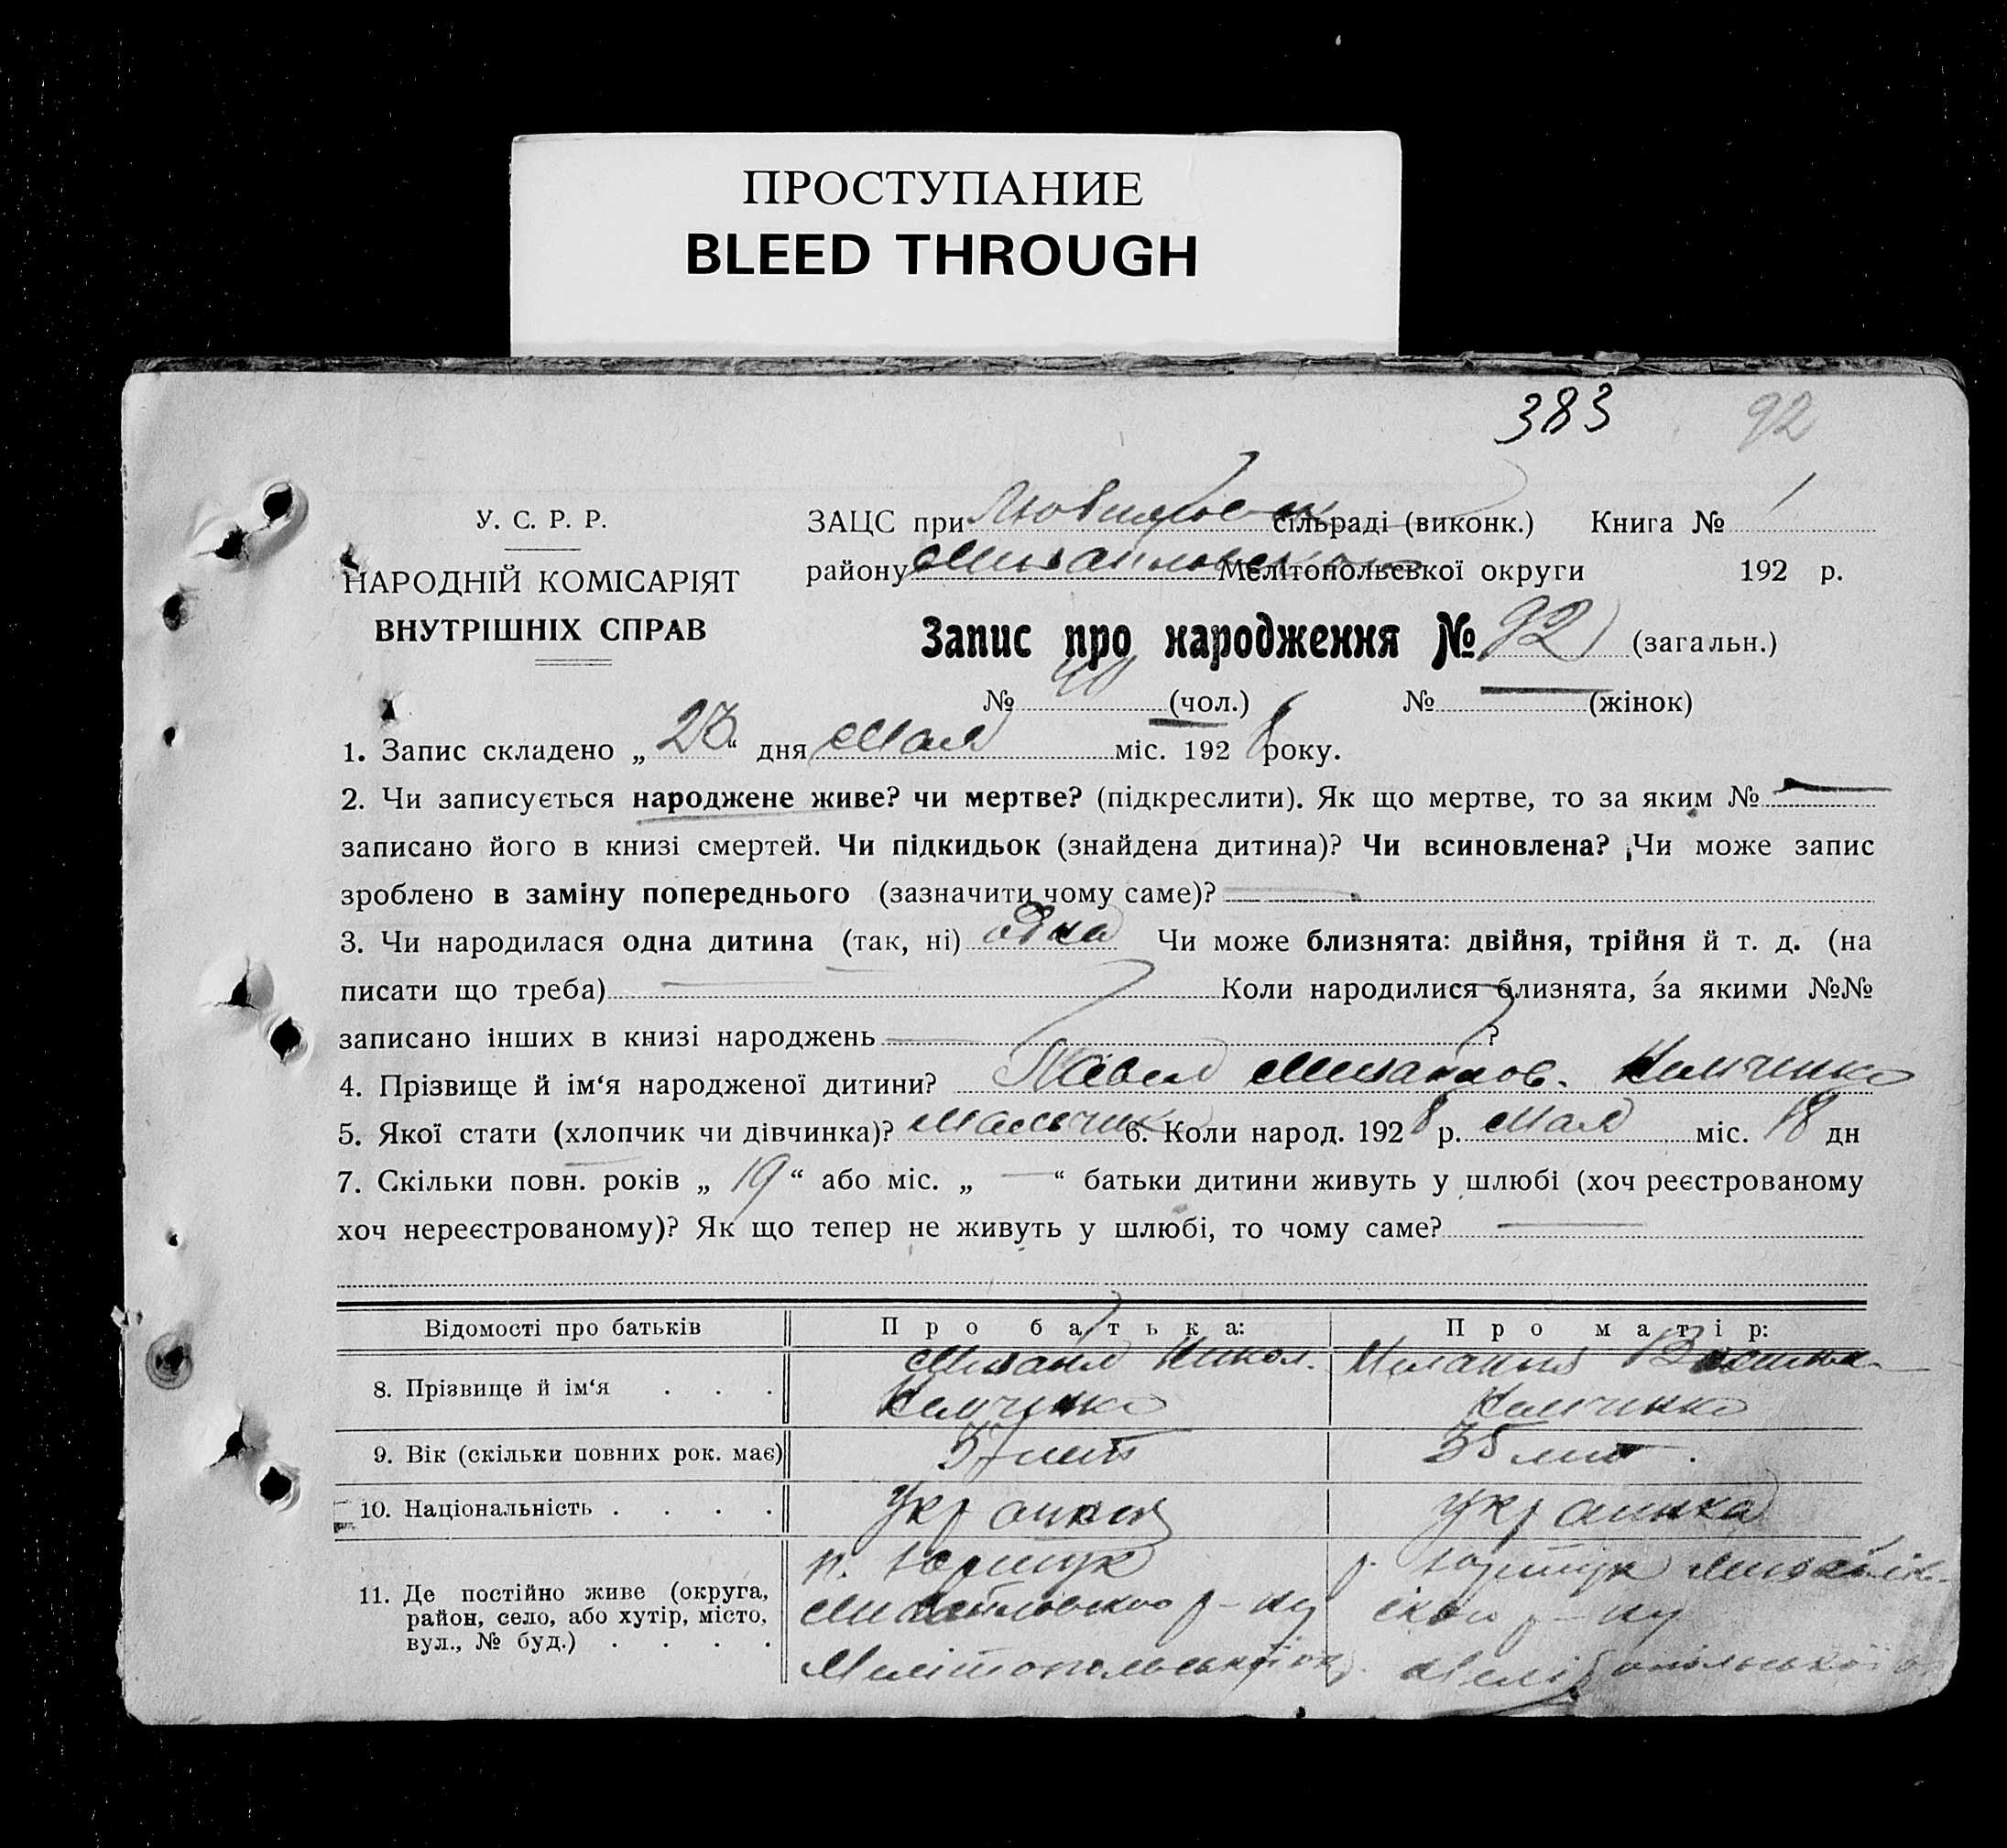 ПРОСТУПАНИЕ
BLEED THROUGH
383 92
У. С. Р. Р.
НАРОДНІЙ КОМІСАРІЯТ
ВНУТРІШНІХ СПРАВ
ЗАЦС при сільраді (виконк.) Книга № 1
району Михайловского Мелітопольської округи 192 р.
Запис про народження № 92 (загальн.)
№ (чол.) № — (жінок)
1. Запис складено „ 23 “ дня Мая міс. 192 8 року.
2. Чи записується народжене живе? чи мертве? (підкреслити). Як що мертве, то за яким № —
записано його в книзі смертей. Чи підкидьок (знайдена дитина)? Чи всиновлена? Чи може запис
зроблено в заміну попереднього (зазначити чому саме)? —
3. Чи народилася одна дитина (так, ні) одна Чи може близнята: двійня, трійня й т. д. (на
писати що треба) — Коли народилися близнята, за якими №№
записано інших в книзі народжень — ?
4. Прізвище й ім‘я народженої дитини? Павел Михайлов. Немченко
5. Якої стати (хлопчик чи дівчинка)? Мальчик 6. Коли народ. 192 8 р. Мая міс. 18 дн
7. Скільки повн. років „ 19 “ або міс. „ — “ батьки дитини живуть у шлюбі (хоч реєстрованому
хоч нереєстрованому)? Як що тепер не живуть у шлюбі, то чому саме? —
Відомості про батьків Про батька: Про матір:
8. Прізвище й ім‘я . . . Михаил Никол. Мелания
Немченко Немченко
9. Вік (скільки повних рок. має) 37 лет 35 лет.
10. Національність . . . . Украинец Украинка
11. Де постійно живе (округа,
район, село, або хутір, місто,
вул., № буд.) . . . .
Михайловского р-ну
Мелітопольської ок. Мелітопольської